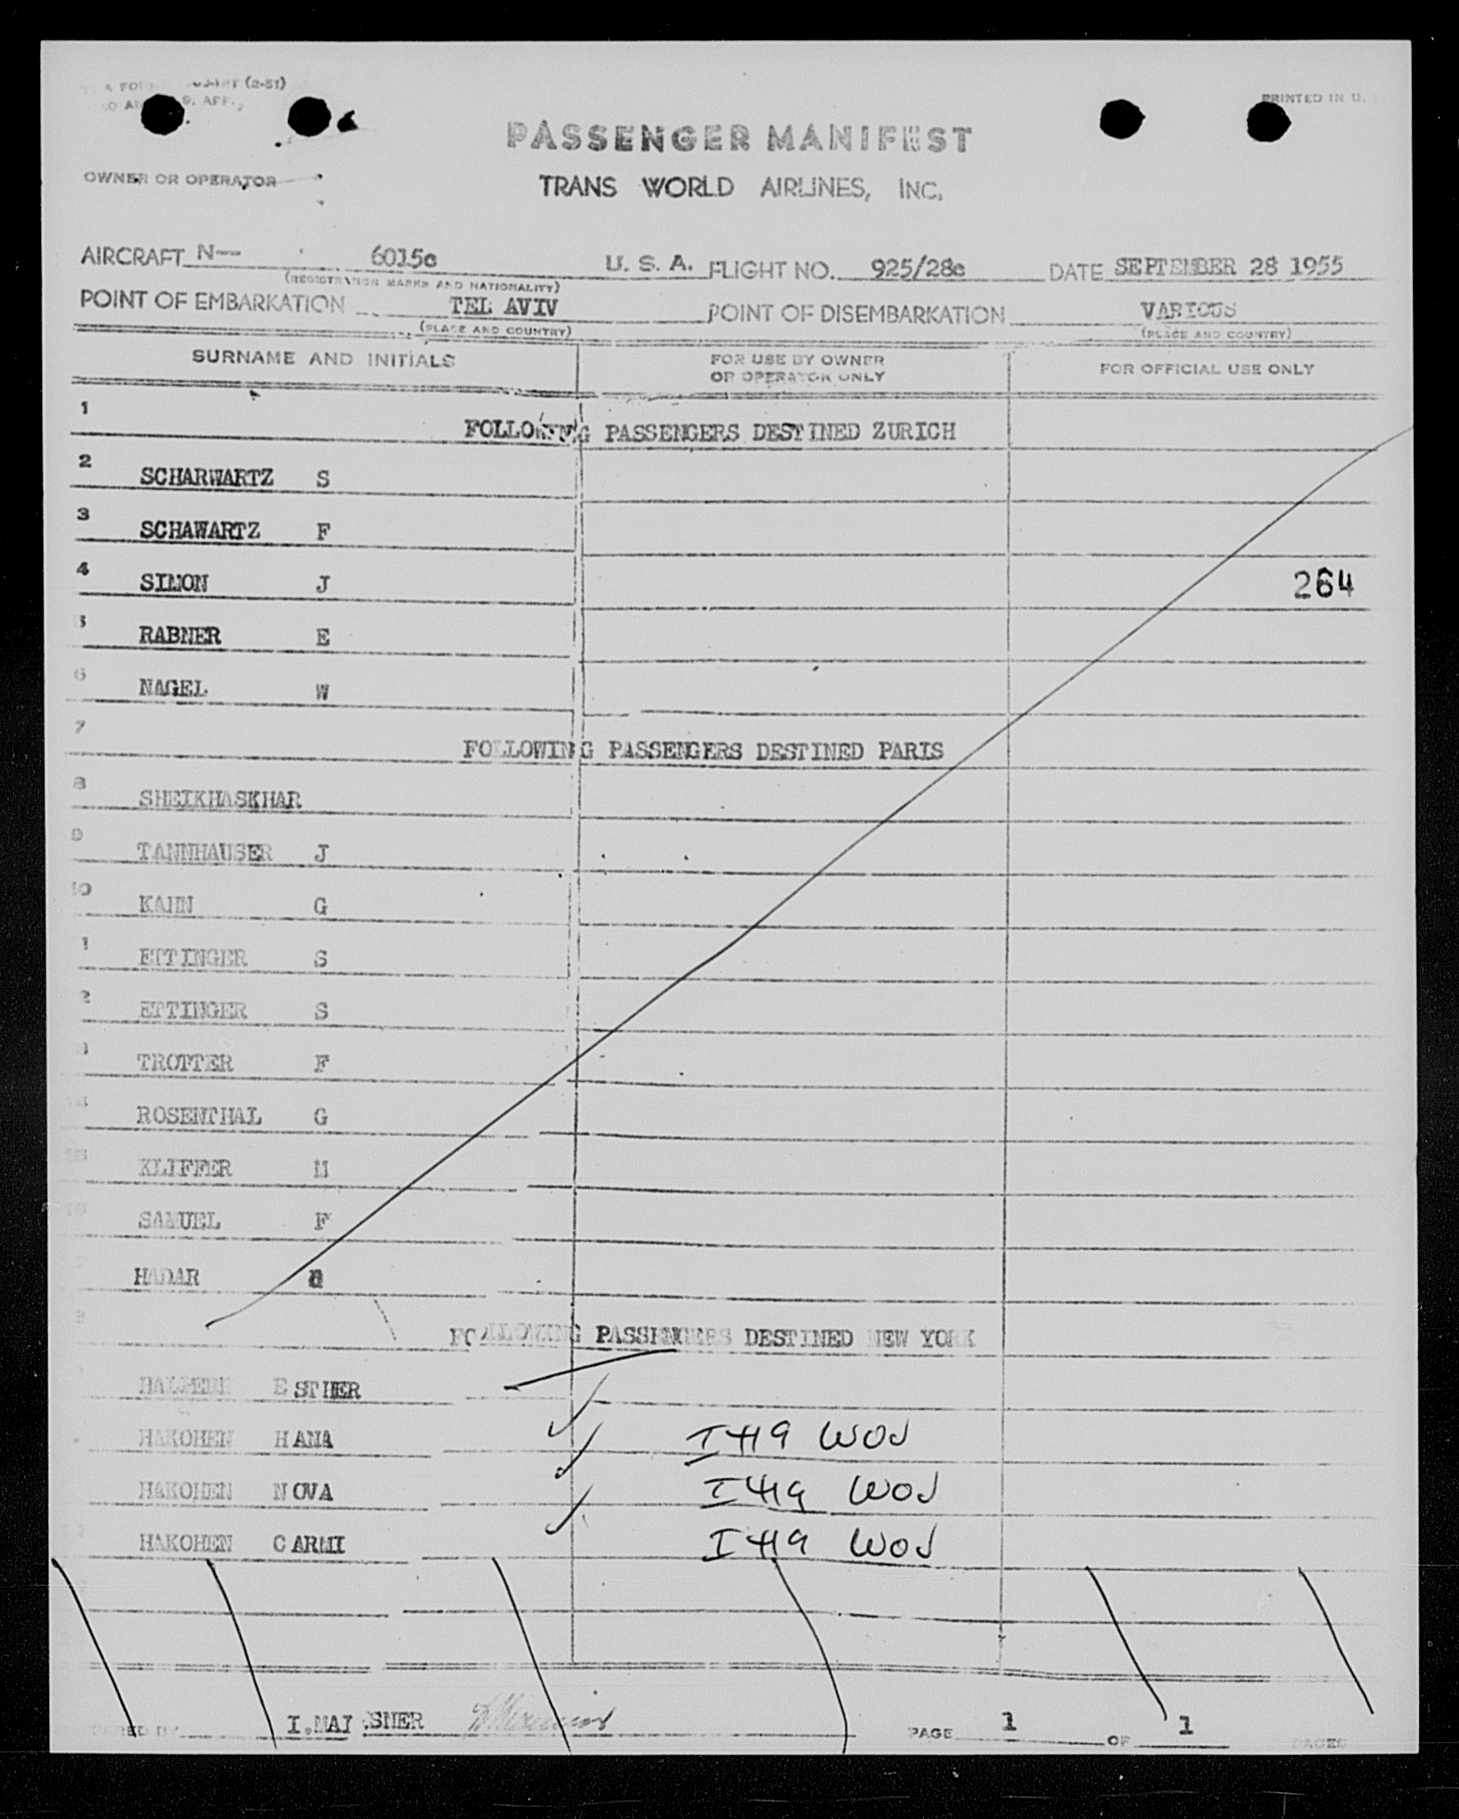 (2-51)
PRINTED IN U.
PASSENGER MANIFEST
OWNER OR OPERATOR
TRANS WORLD AIRLINES, INC.
AIRCRAFT N-- 6015c U. S. A. FLIGHT NO. 925/28c DATE SEPTEMBER 28 1955
(REGISTRATION MARKS AND NATIONALITY)
POINT OF EMBARKATION TEL AVIV POINT OF DISEMBARKATION VARIOUS
(PLACE AND COUNTRY) (PLACE AND COUNTRY)
SURNAME AND INITIALS FOR USE BY OWNER OR OPERATOR ONLY FOR OFFICIAL USE ONLY
1 FOLLOWING PASSENGERS DESTINED ZURICH
2 SCHARWARTZ S
3 SCHAWARTZ F
4 SIMON J 264
5 RABNER E
6 NAGEL W
7 FOLLOWING PASSENGERS DESTINED PARIS
8 SHEIKHASKHAR
9 TANNHAUSER J
10 KAHN G
1 ETTINGER S
2 ETTINGER S
3 TROTTER F
ROSENTHAL G
KLIFFER M
SAMUEL F
HADAR
FOLLOWING PASSENGERS DESTINED NEW YORK
HALPERN ESTHER
HAKOHEN HANA I 419 WOJ
HAKOHEN NOVA I 419 WOJ
HAKOHEN CARMI I 419 WOJ
I.MAISNER PAGE 1 OF 1 PAGES